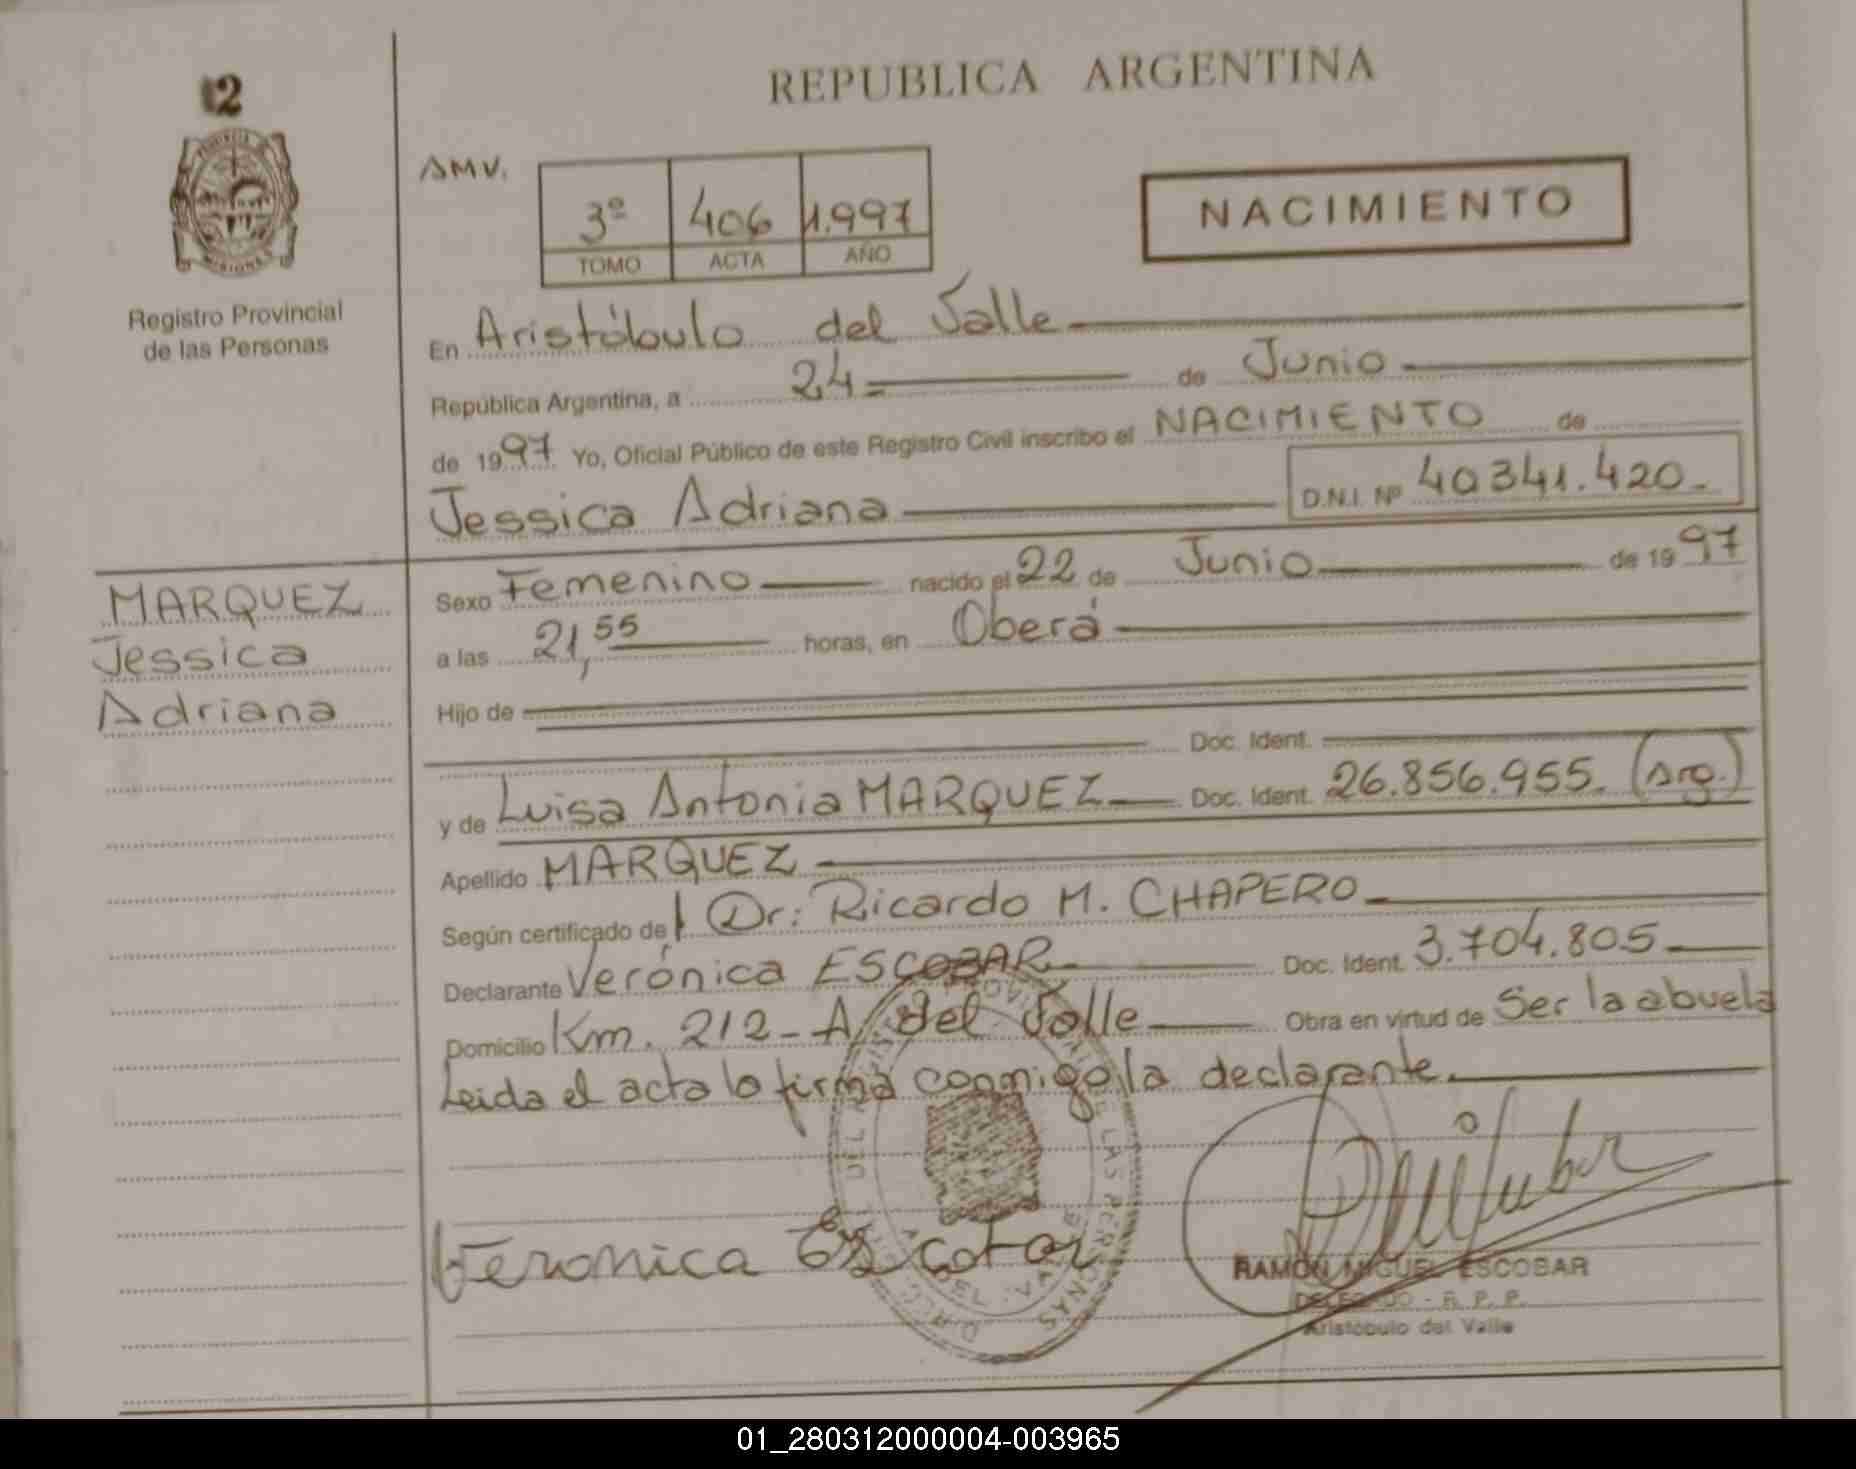 12
REPUBLICA ARGENTINA
AMV.
3º 406 1.997
TOMO ACTA AÑO
NACIMIENTO
MISIONES
Registro Provincial
de las Personas
En Aristóbulo del Valle
República Argentina, a 24 de Junio
de 1997 Yo, Oficial Público de este Registro Civil inscribo el NACIMIENTO de
Jessica Adriana D.N.I. Nº 40341.420.
MARQUEZ
Jessica
Adriana
Sexo Femenino nacido el 22 de Junio de 1997
a las 21,55 horas, en Oberá
Hijo de
Doc. Ident.
y de Luisa Antonia MARQUEZ Doc. Ident. 26.856.955. (Arg.)
Apellido MARQUEZ
Según certificado de Dr: Ricardo M. CHAPERO
Declarante Verónica ESCOBAR Doc. Ident. 3.704.805
Domicilio Km. 212 - A. del Valle Obra en virtud de Ser la abuela
Leida el acta la firma conmigo la declarante.
Veronica Escobar
RAMON MIGUEL ESCOBAR
DELEGADO - R. P. P.
Aristóbulo del Valle
01_280312000004-003965